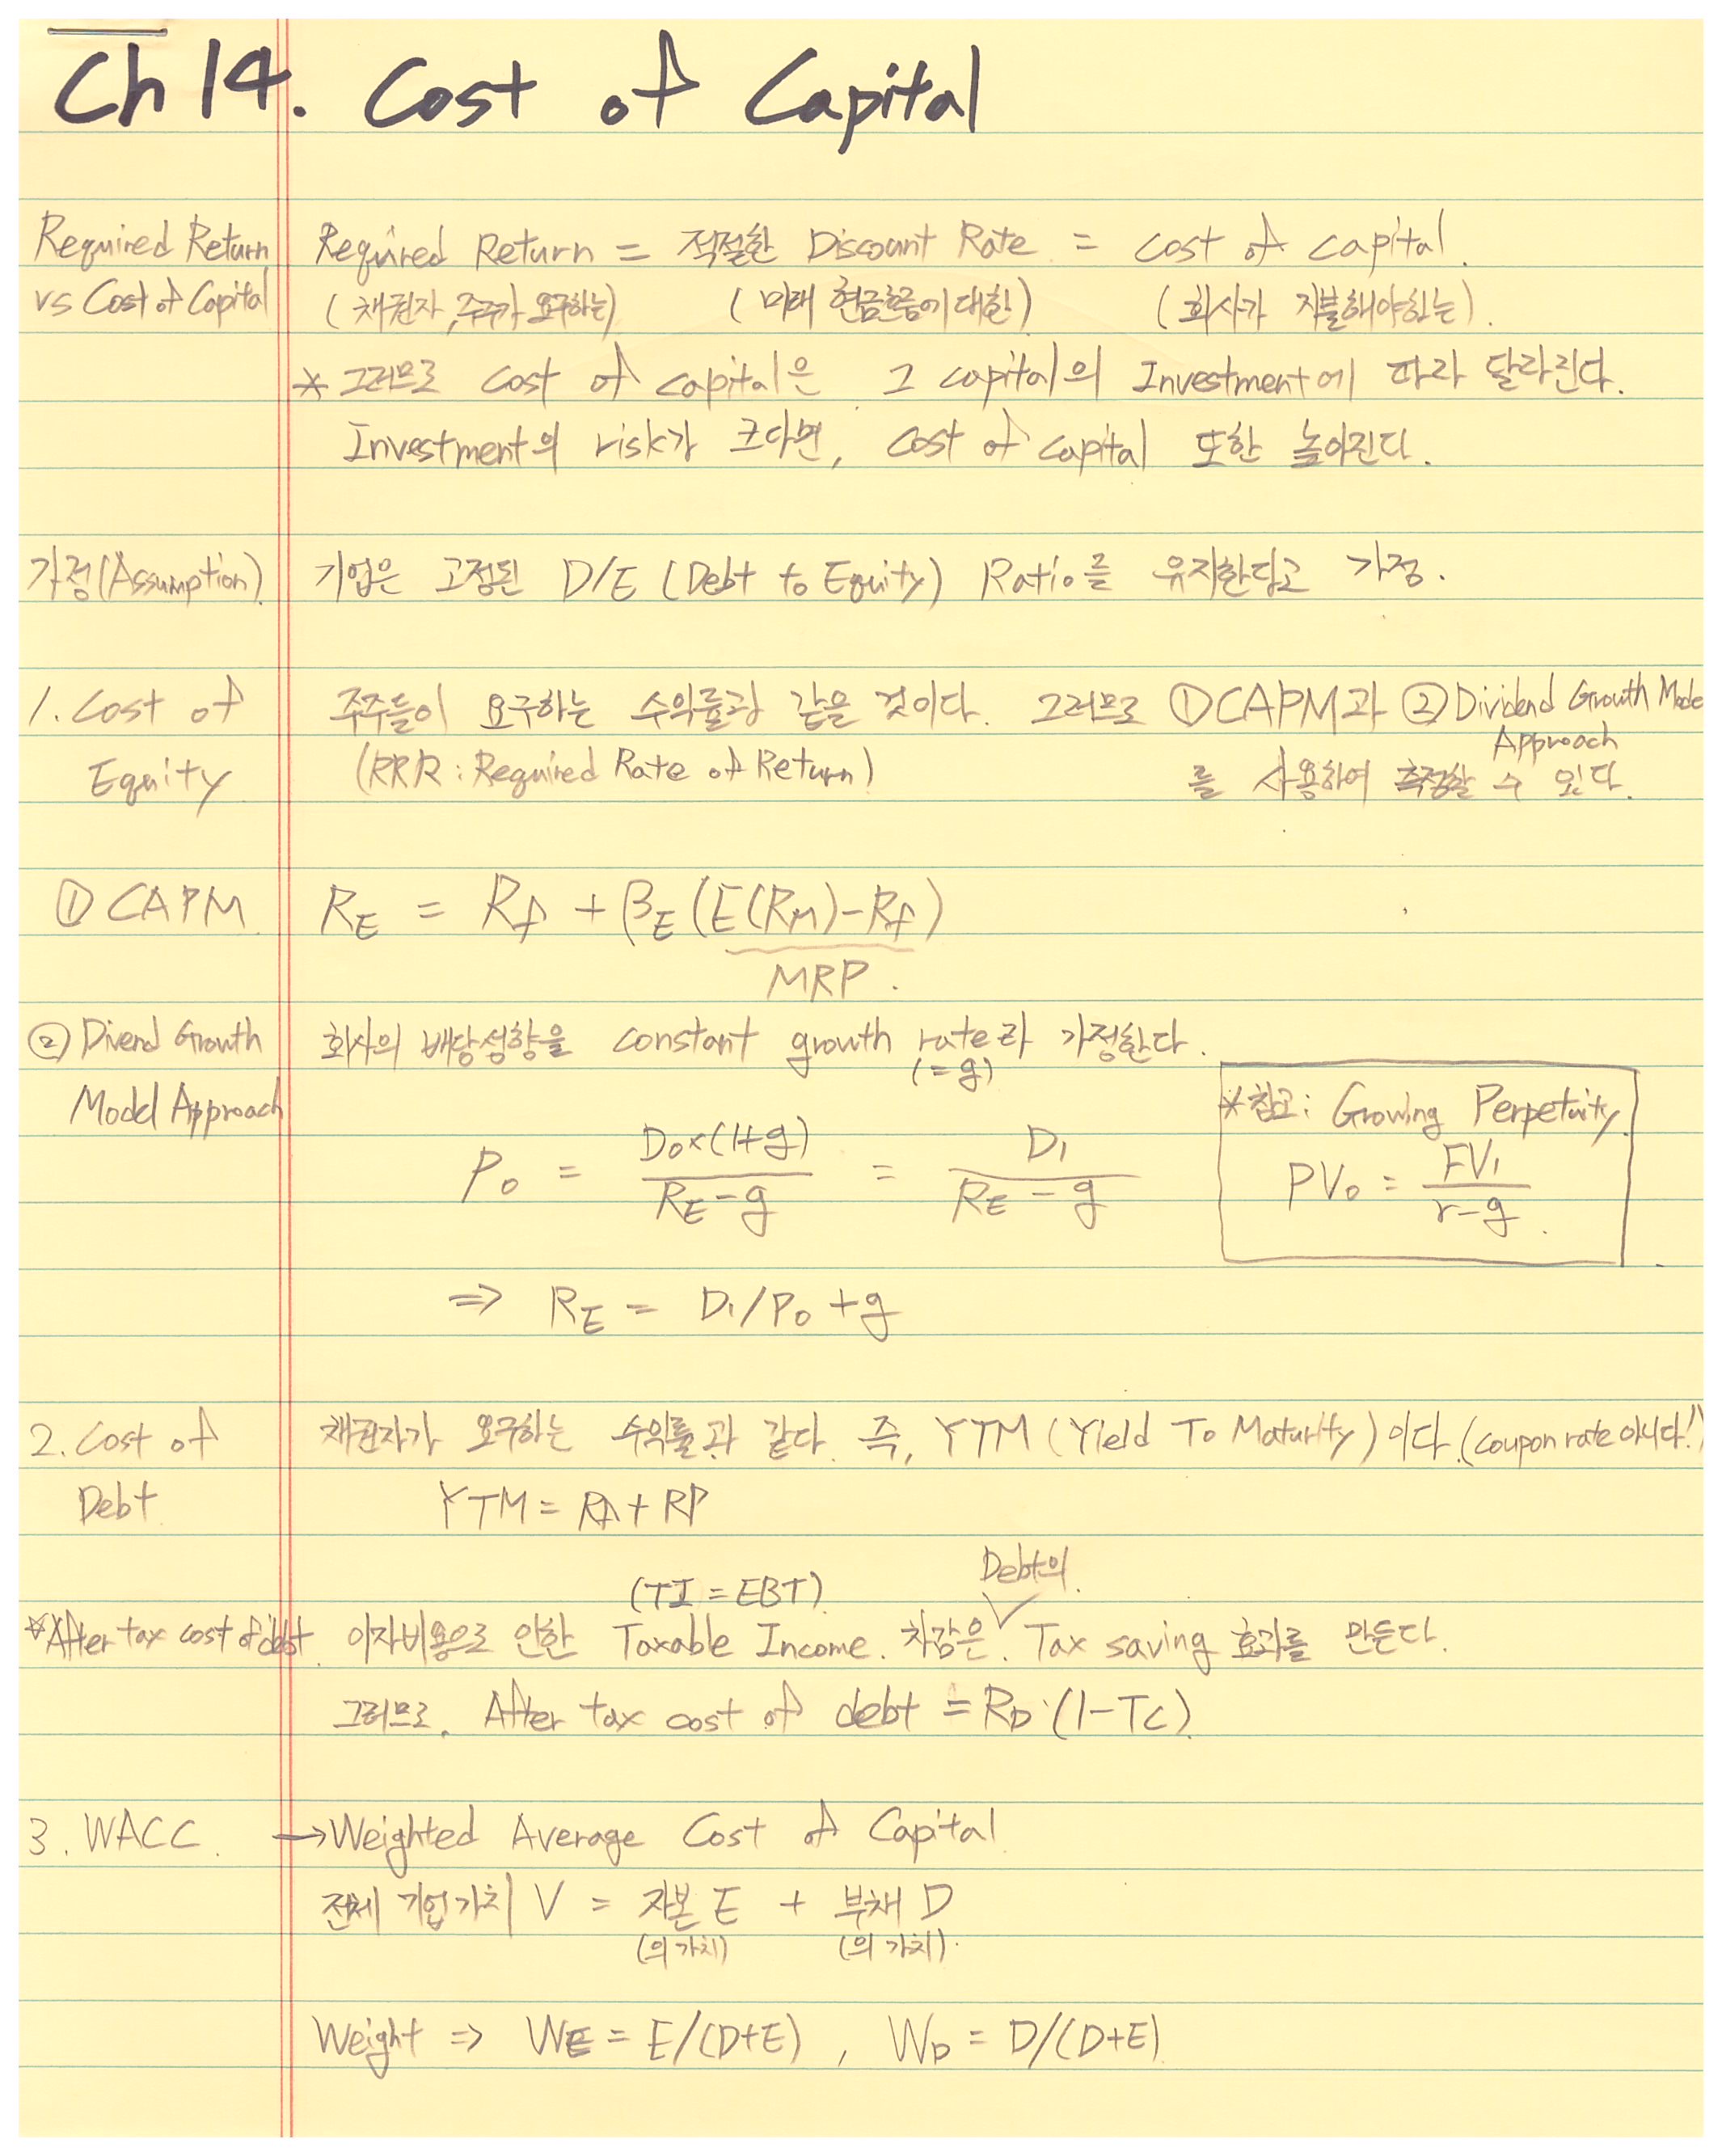 Ch 14. Cost of Capital
Required Return vs Cost of Capital
Required Return = 적절한 Discount Rate = cost of capital.
(채권자, 주주가 요구하는) (미래 현금흐름에 대한) (회사가 지불해야하는).
* 그러므로 cost of capital은 그 capital의 Investment에 따라 달라진다.
Investment의 risk가 크다면, cost of capital 또한 높아진다.
가정(Assumption) 기업은 고정된 D/E (Debt to Equity) Ratio를 유지한다고 가정.
1. Cost of Equity
주주들이 요구하는 수익률과 같은 것이다. 그러므로 ①CAPM과 ②Dividend Growth Mode
Approach
(RRR : Required Rate of Return) 를 사용하여 측정할 수 있다.
① CAPM R_E = R_f + β_E (E(R_M) - R_f)
MRP.
② Divend Growth Model Approach
회사의 배당성향을 constant growth rate라 가정한다.
(=g)
P₀ = D₀×(1+g) / R_E - g = D₁ / R_E - g
*참고: Growing Perpetuity.
PV₀ = FV₁ / r-g.
⇒ R_E = D₁/P₀ + g
2. Cost of Debt
채권자가 요구하는 수익률과 같다. 즉, YTM (Yield To Maturity)이다. (coupon rate 아니다!)
YTM = Rf + RP
(TI = EBT). Debt의
*After tax cost of debt. 이자비용으로 인한 Taxable Income. 차감은 Tax saving 효과를 만든다.
그러므로, After tax cost of debt = R_D·(1-Tc)
3. WACC. → Weighted Average Cost of Capital
전체 기업가치 V = 자본 E + 부채 D
(의 가치) (의 가치).
Weight ⇒ W_E = E/(D+E) , W_D = D/(D+E)